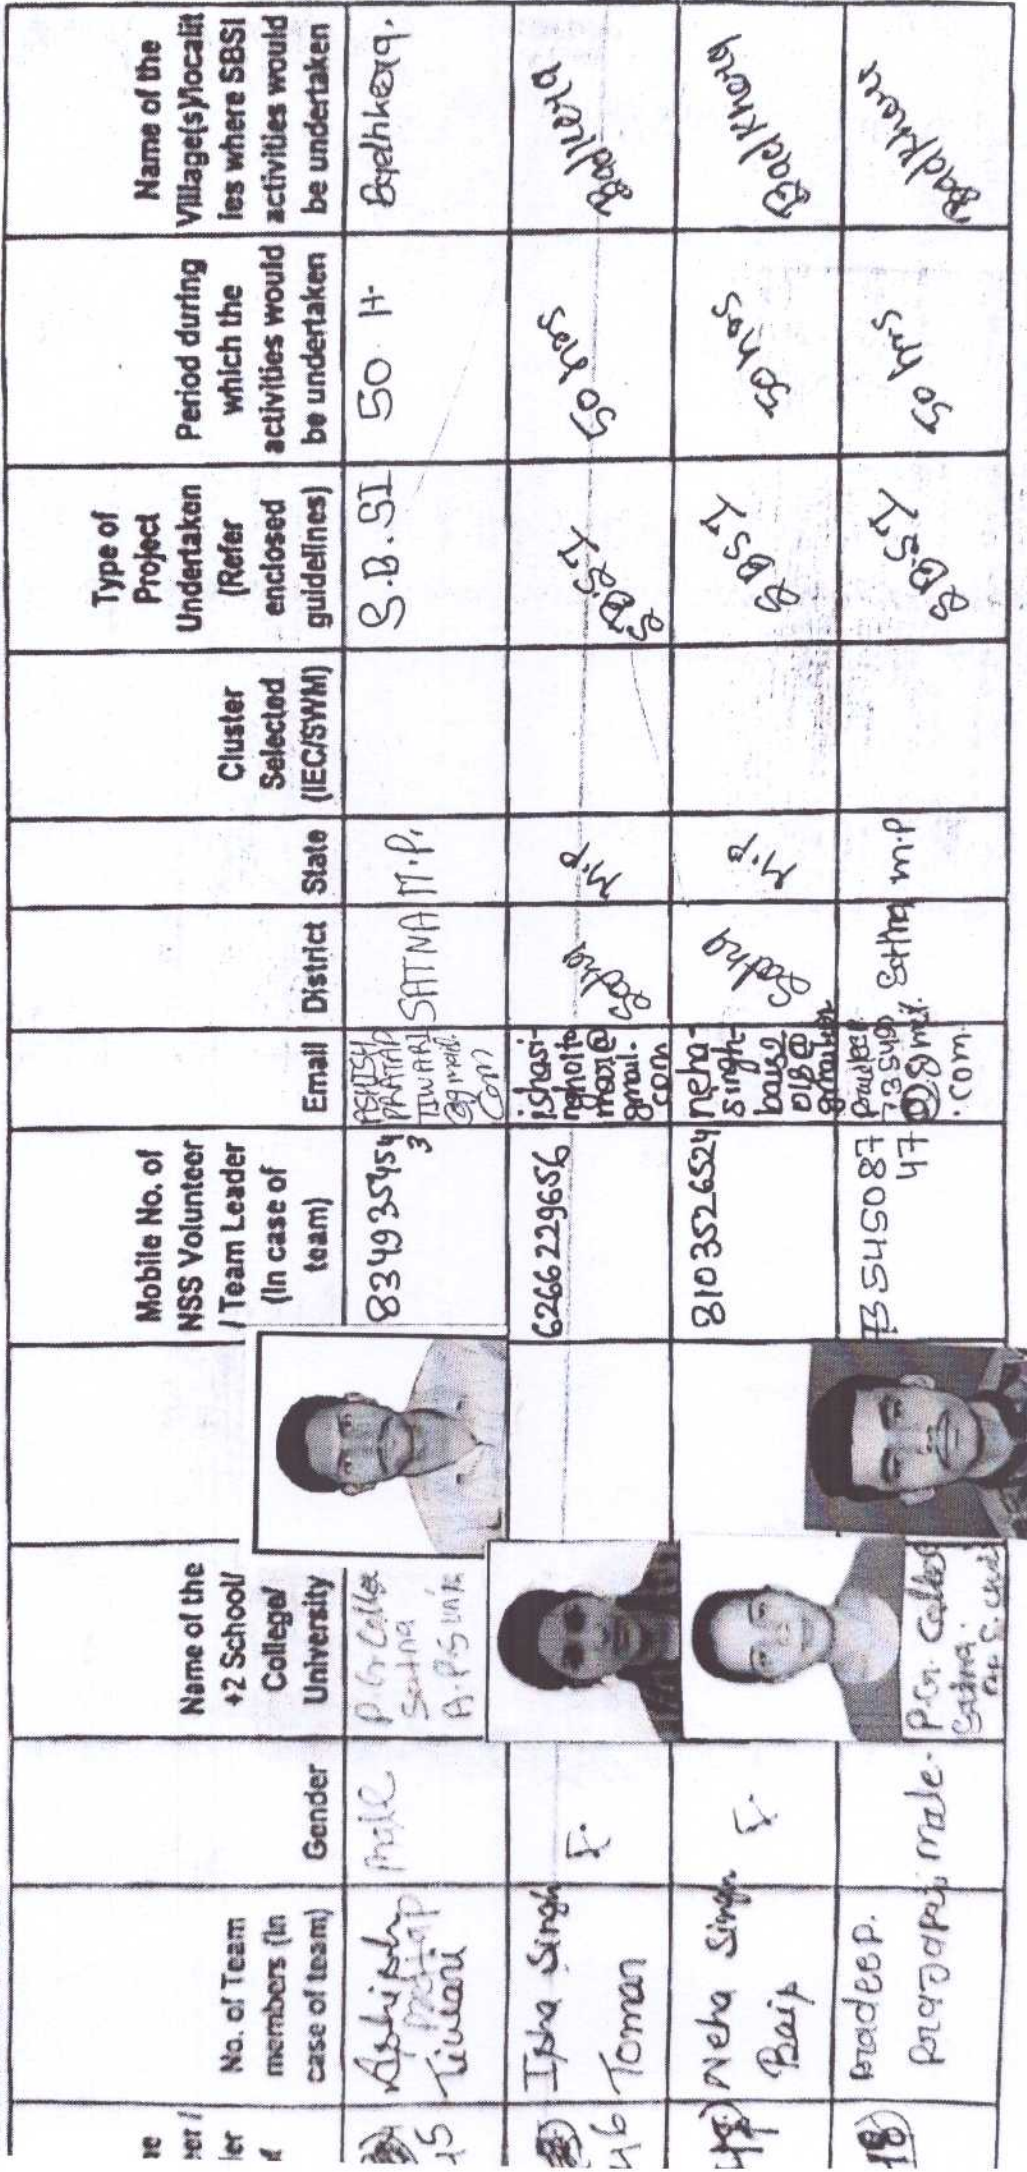 No. of Team
members (In
case of team)
Gender
Name of the
+2 School/
College/
University
Mobile No. of
NSS Volunteer
/ Team Leader
(In case of
team)
Email
District
State
Cluster
Selected
(IEC/SWM)
Type of
Project
Undertaken
(Refer
enclosed
guidelines)
Period during
which the
activities would
be undertaken
Name of the
Village(s)/localit
ies where SBSI
activities would
be undertaken
45
Ashish
Pratap
Tiwari
Male
P.G. College
Satna
A.P.S Uni
834935454
3
ASHISH
PRATAP
TIWARI
@gmail.
Com
SATNA
M.P.
S.B.SI
50 H.
46
Isha Singh
Tomar
F.
6266229656
gmail.
com
Satna
M.P
S.B.S.I
50 hrs
Neha Singh
Bais
F.
8103526524
neha-
singh-
bais2
018@
gmail.com
Satna
M.P
SBSI
50 hrs
Badkhera
Pradeep.
Prajapati
male.
P.G. College
Satna.
73545087
47
.com.
Satna
m.p
S.B.S.I
50 hrs
Badkhera